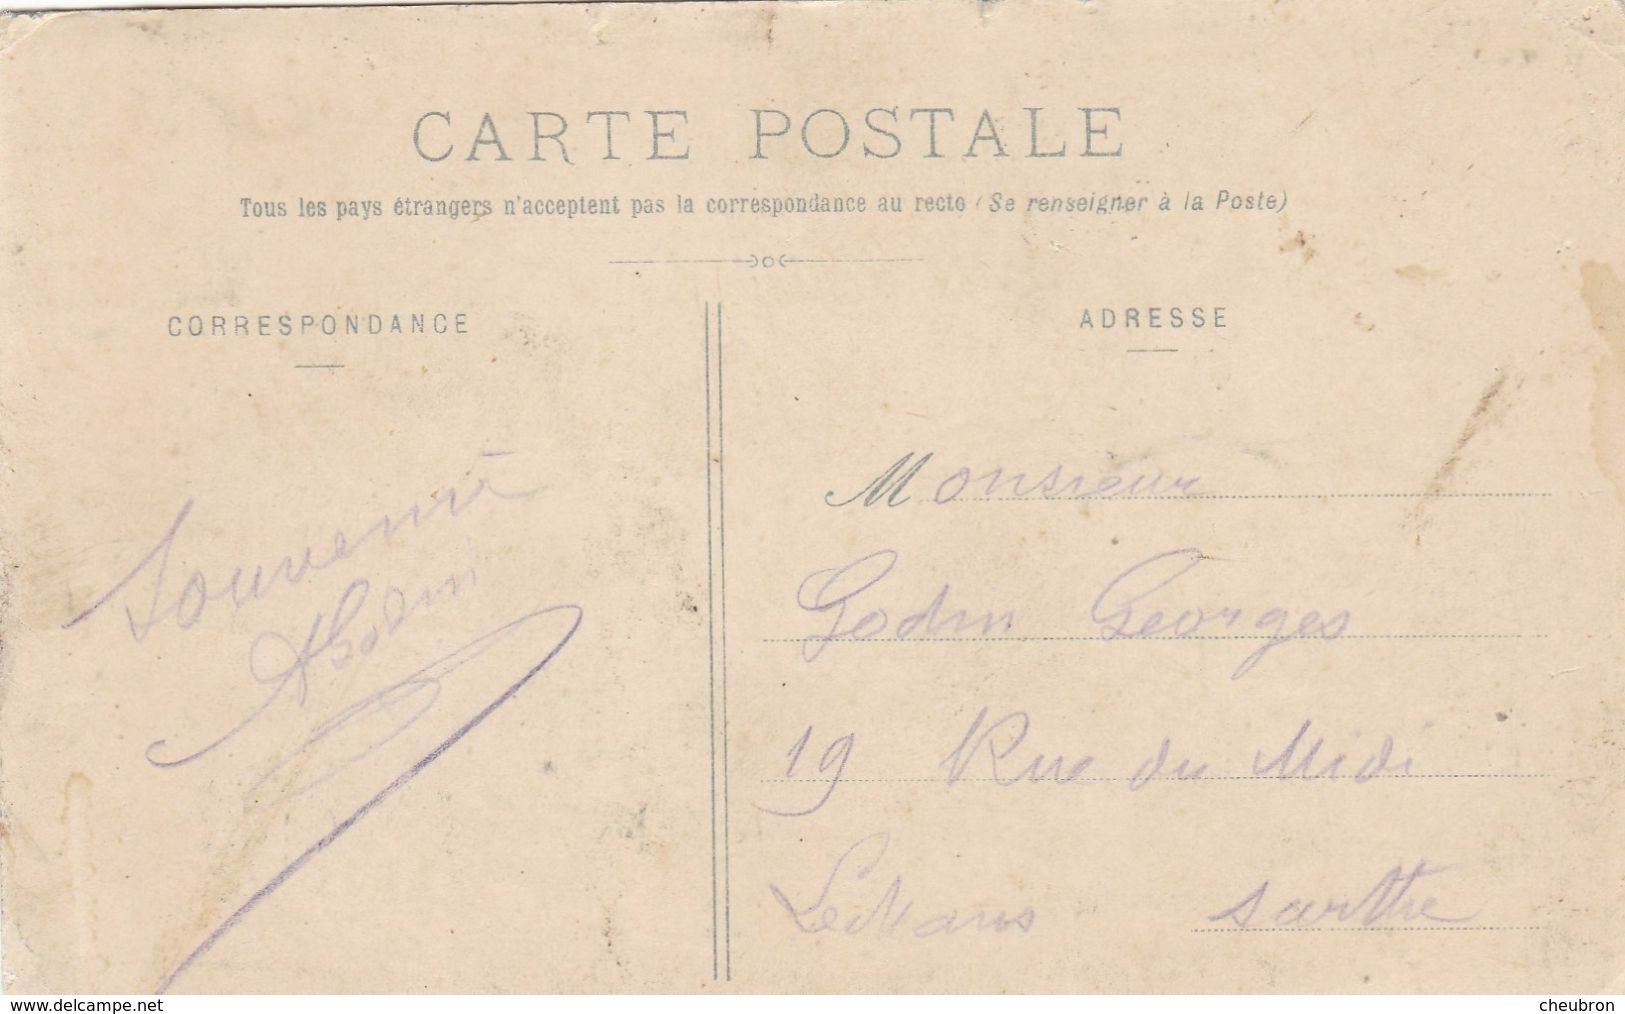 CARTE POSTALE
Tous les pays étrangers n'acceptent pas la correspondance au recto (Se renseigner à la Poste)
CORRESPONDANCE
ADRESSE
Souvenir
AGodin
Monsieur
Godin Georges
19 Rue du Midi
Le Mans Sarthe
www.delcampe.net
cheubron